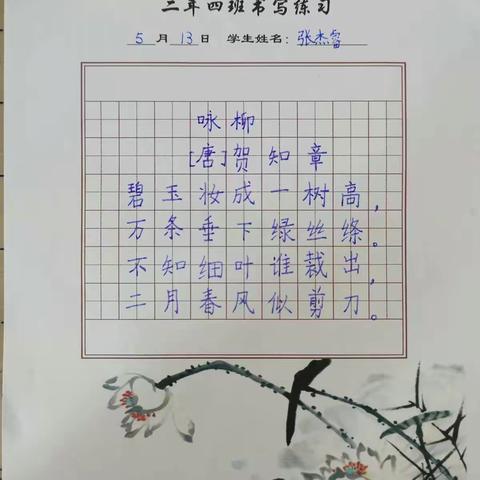 二年四班书写练习
5月13日 学生姓名：张杰睿
咏柳
[唐]贺知章
碧玉妆成一树高，
万条垂下绿丝绦。
不知细叶谁裁出，
二月春风似剪刀。